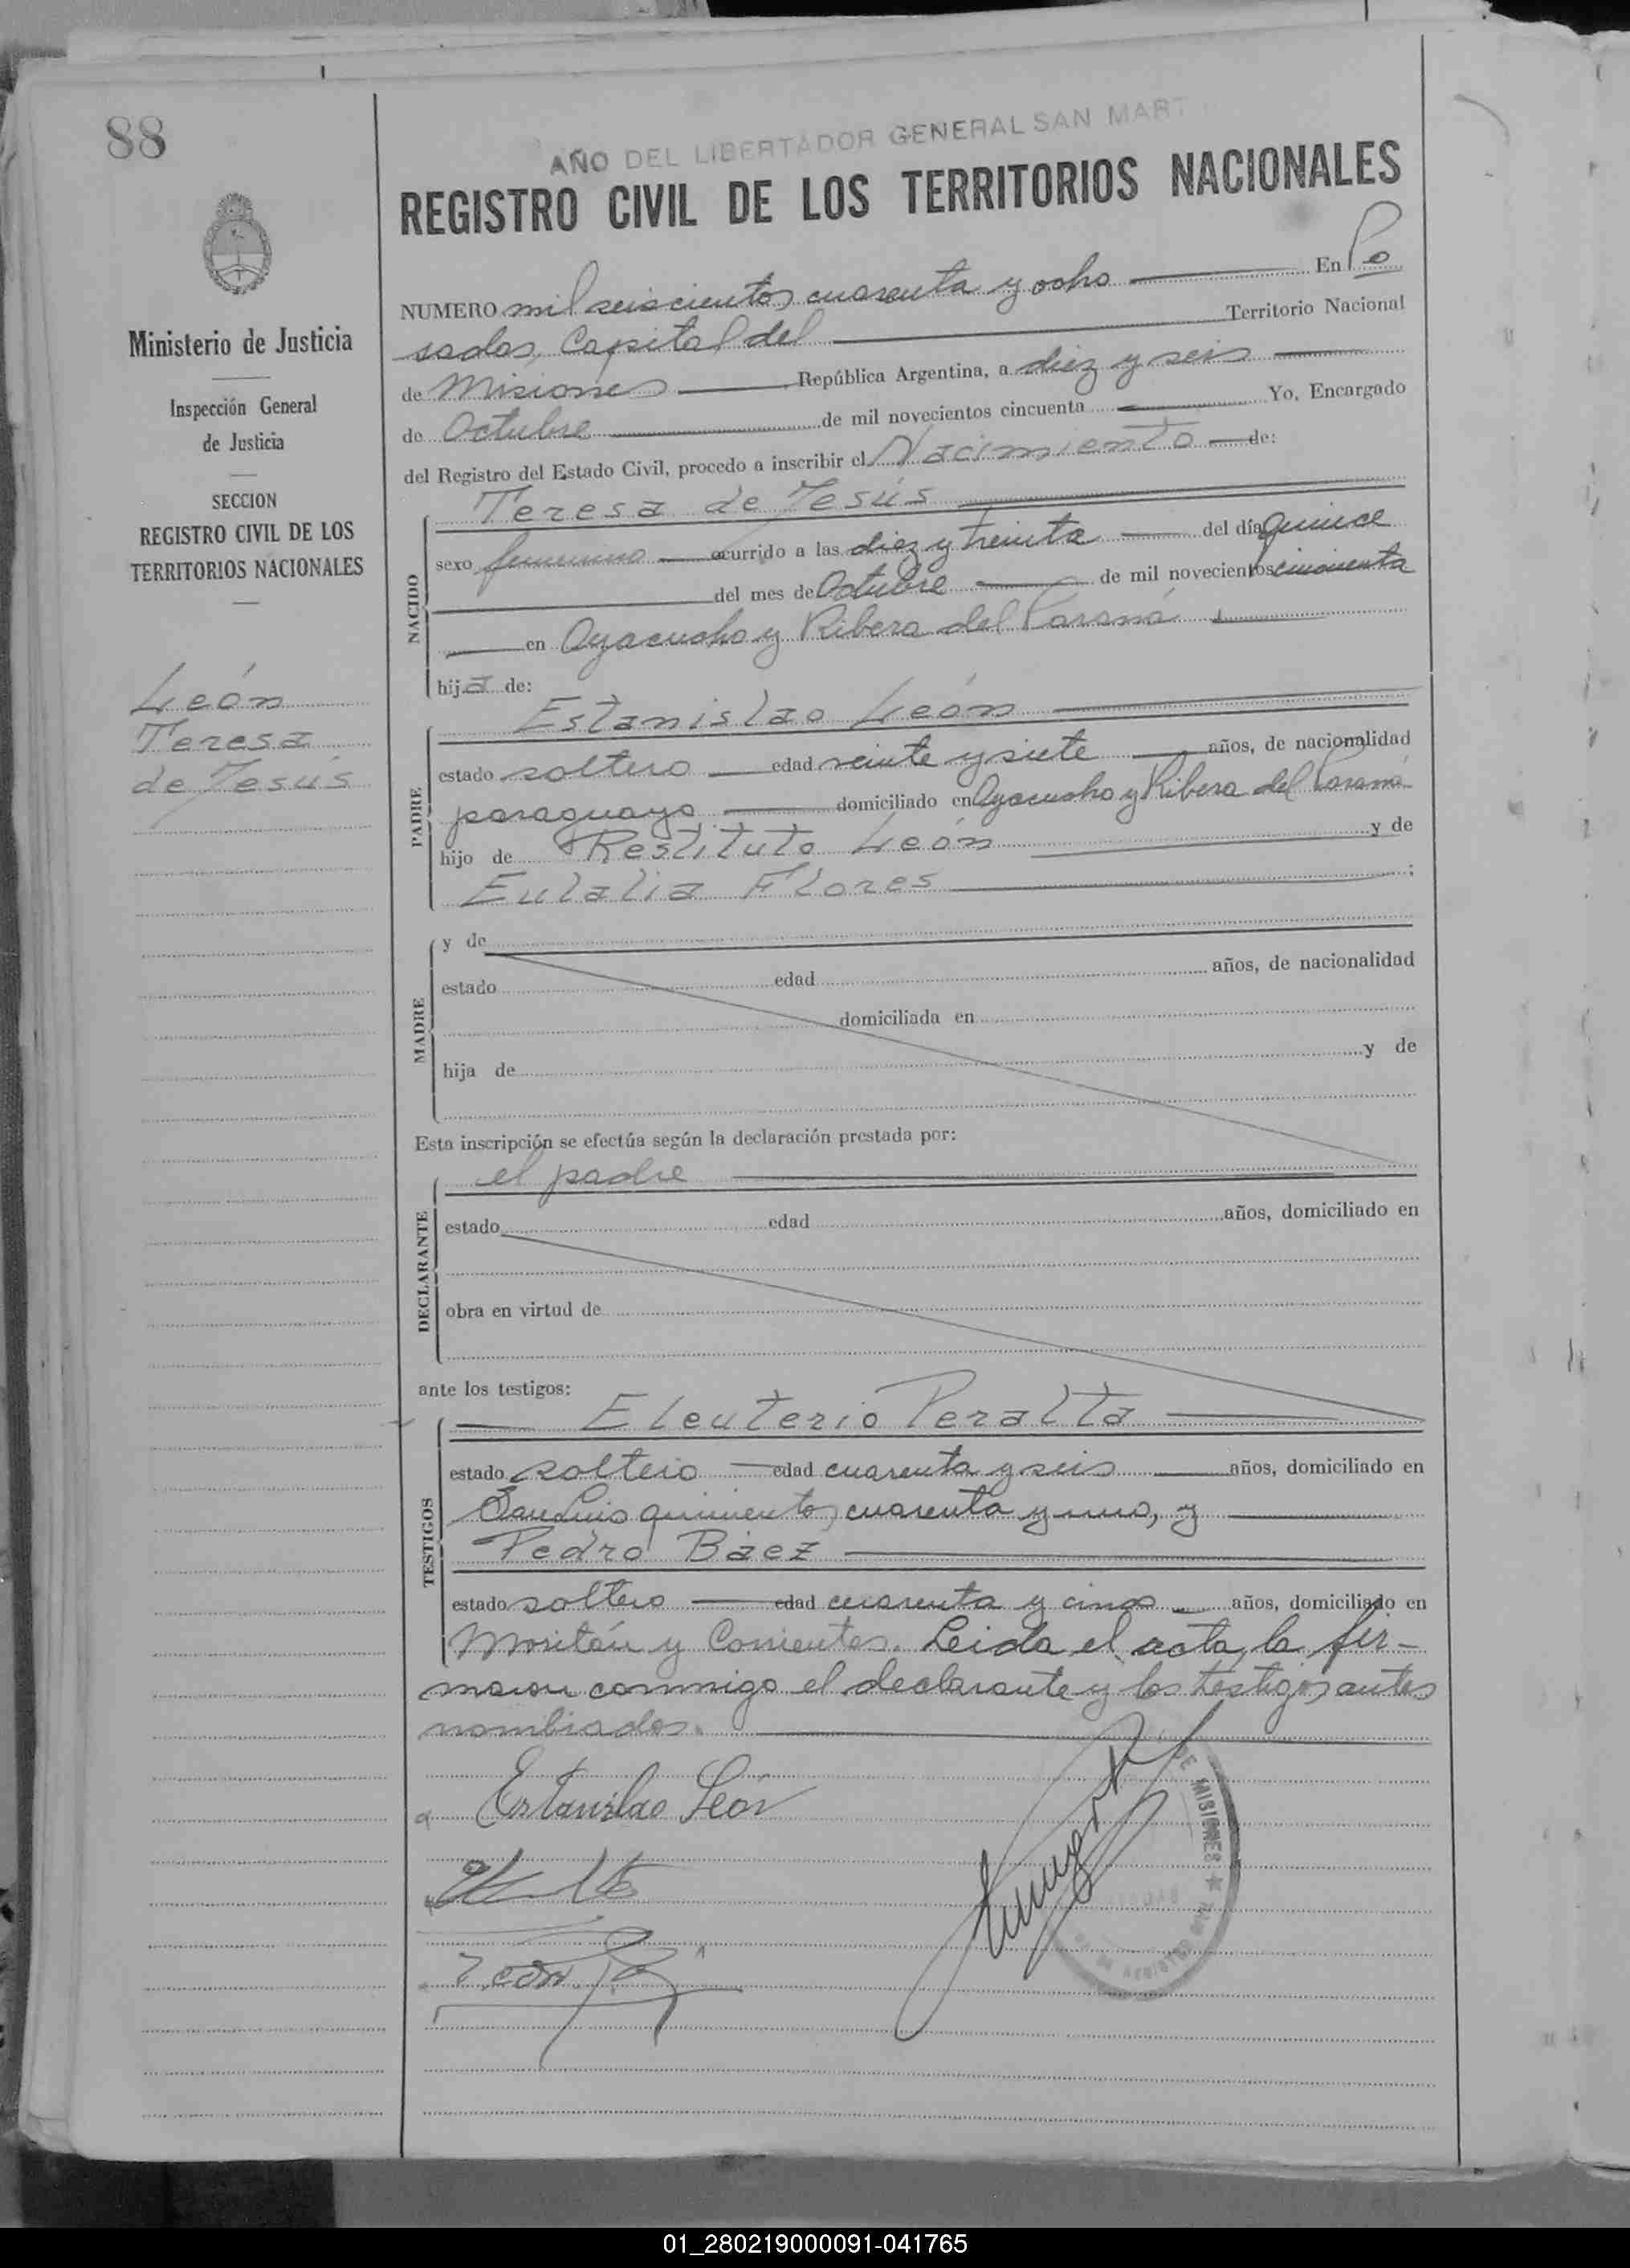 88
AÑO DEL LIBERTADOR GENERAL SAN MART
REGISTRO CIVIL DE LOS TERRITORIOS NACIONALES
Ministerio de Justicia
Inspección General
de Justicia
SECCION
REGISTRO CIVIL DE LOS
TERRITORIOS NACIONALES
León
Teresa
de Jesús
NUMERO mil seiscientos cuarenta y ocho En Po
sadas, Capital del Territorio Nacional
de Misiones República Argentina, a diez y seis
de Octubre de mil novecientos cincuenta Yo, Encargado
del Registro del Estado Civil, procedo a inscribir el Nacimiento de:
Teresa de Jesús
NACIDO
sexo femenino ocurrido a las diez y treinta del día quince
del mes de Octubre de mil novecientos cincuenta
en Ayacucho y Ribera del Paraná
hija de:
Estanislao León
PADRE
estado soltero edad veinte y siete años, de nacionalidad
paraguayo domiciliado en Ayacucho y Ribera del Paraná
hijo de Restituto León y de
Eulalia Flores ;
MADRE
y de
estado edad años, de nacionalidad
domiciliada en
hija de y de
Esta inscripción se efectúa según la declaración prestada por:
el padre
DECLARANTE
estado edad años, domiciliado en
obra en virtud de
ante los testigos:
Eleuterio Peralta
TESTIGOS
estado soltero edad cuarenta y seis años, domiciliado en
San Luis quinientos cuarenta y uno, y
Pedro Báez
estado soltero edad cuarenta y cinco años, domiciliado en
Moritán y Corrientes. Leida el acta, la fir-
maron conmigo el declarante y los testigos antes
nombrados.
Estanislao León
DE MISIONES
01_280219000091-041765